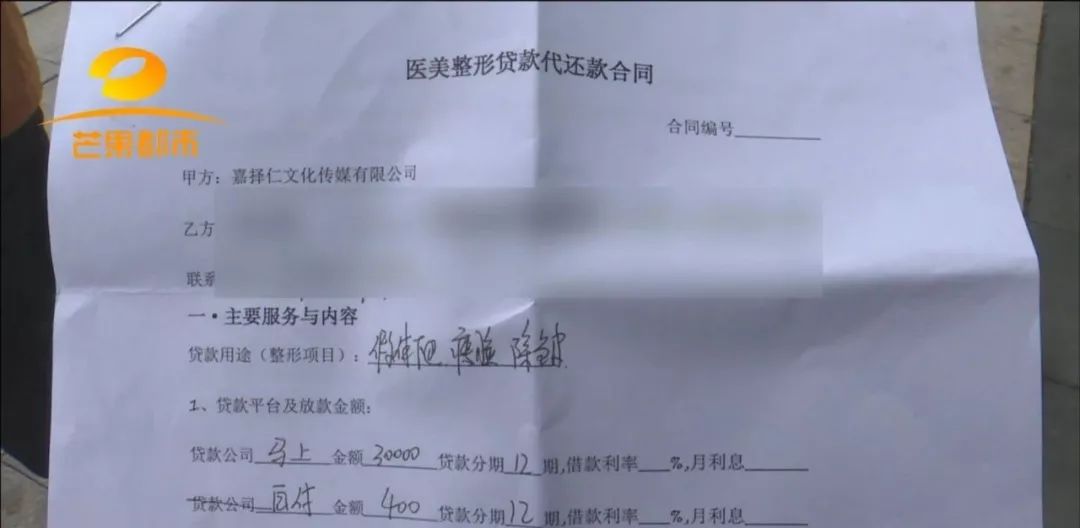 芒果都市
医美整形贷款代还款合同
合同编号
甲方：嘉择仁文化传媒有限公司
乙方
联系
一·主要服务与内容
贷款用途（整形项目）： 瘦脸 除皱
1、贷款平台及放款金额：
贷款公司 马上 金额 30000 贷款分期 12 期,借款利率 %,月利息
贷款公司 金额 400 贷款分期 12 期,借款利率 %,月利息